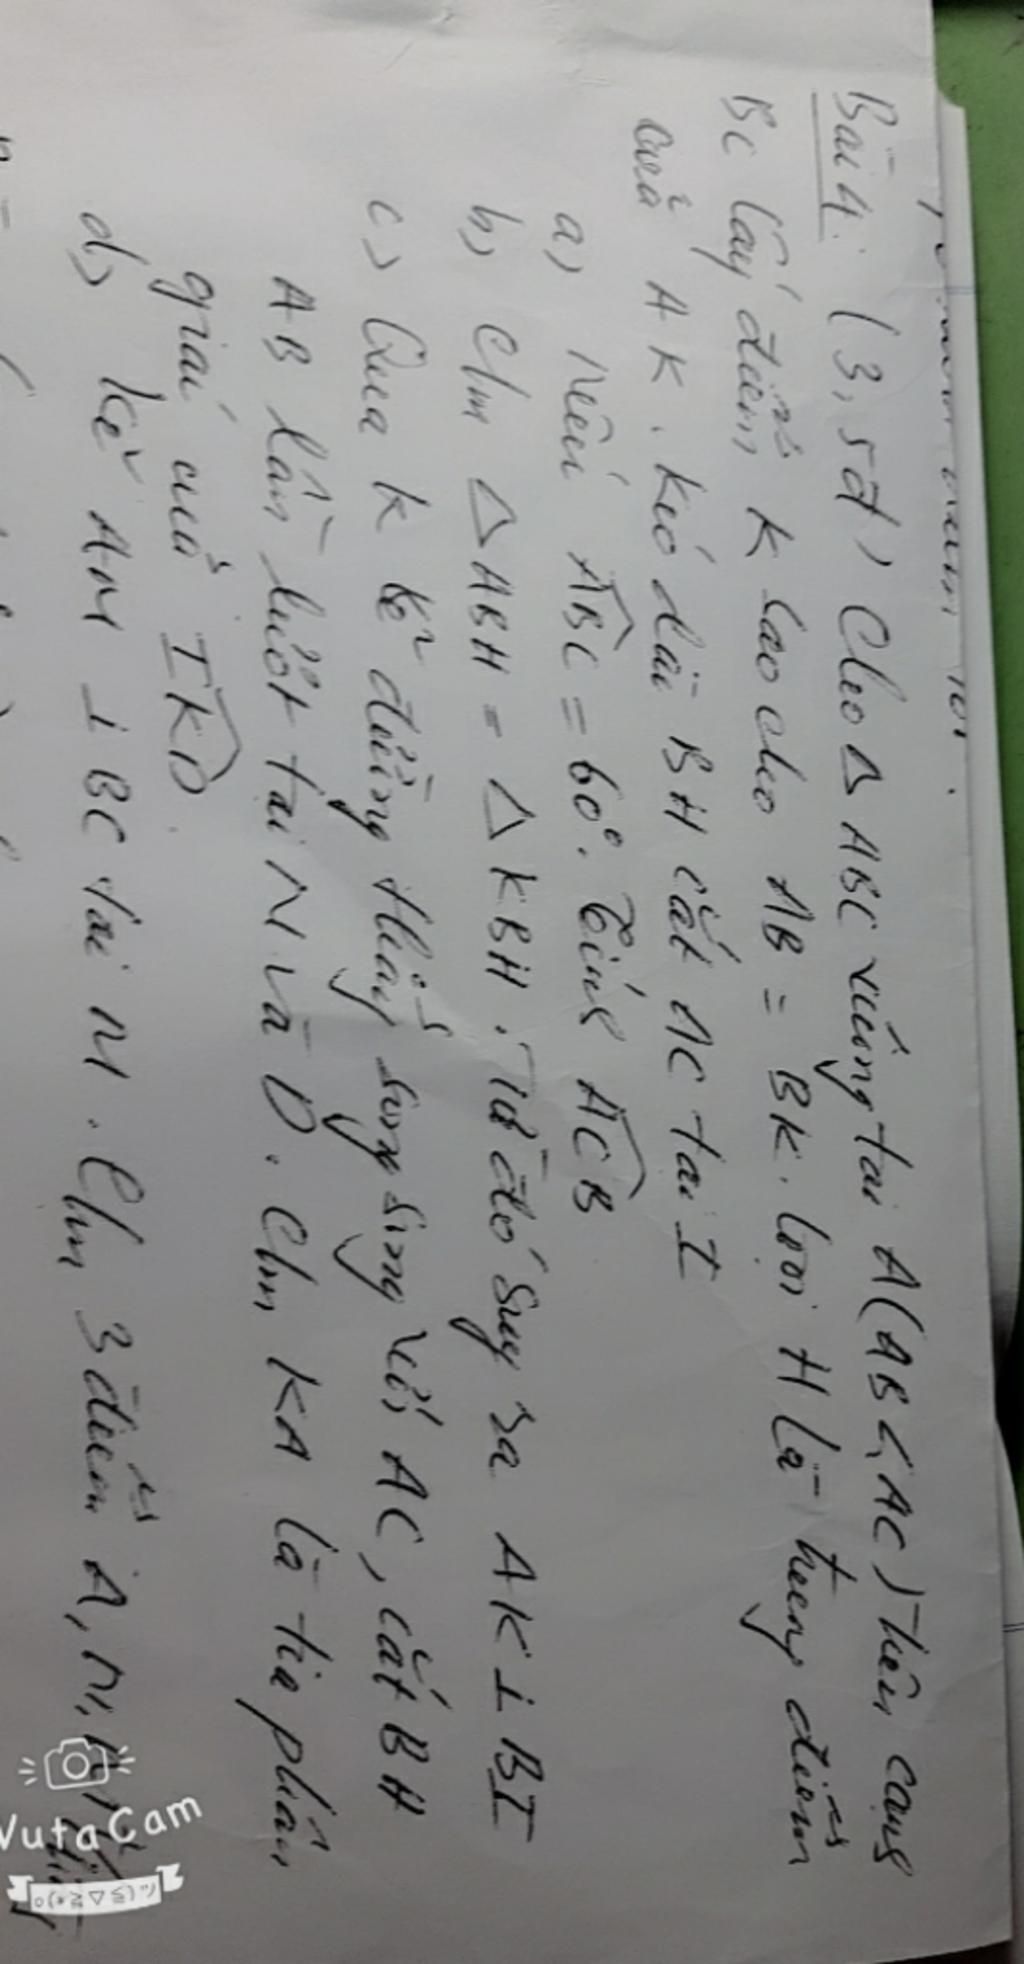 Bài 4: (3,5đ) Cho Δ ABC vuông tại A (AB < AC) trên cạnh
BC lấy điểm K sao cho AB = BK. Gọi H là trung điểm
của AK. Kéo dài BH cắt AC tại I
a) Nếu ABC = 60°. Tính ACB
b) C/m Δ ABH = Δ KBH. Từ đó suy ra AK ⊥ BI
c) Qua K kẻ đường thẳng song song với AC, cắt BH
AB lần lượt tại N và D. C/m KA là tia phân
giác của IKD
d) Kẻ AM ⊥ BC tại M. C/m 3 điểm A, N,
VutaCam